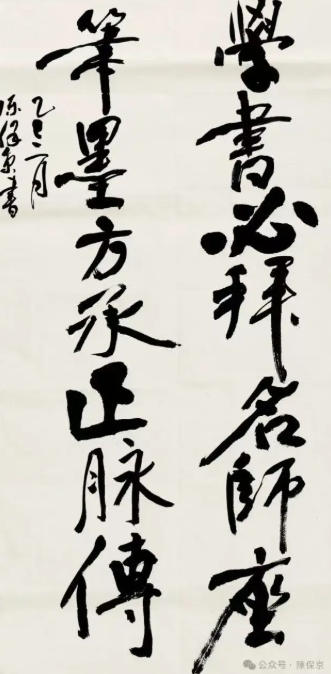 學書必拜名師座
筆墨方承正脉傳
乙巳二月
陈保京書
公众号·陳保京